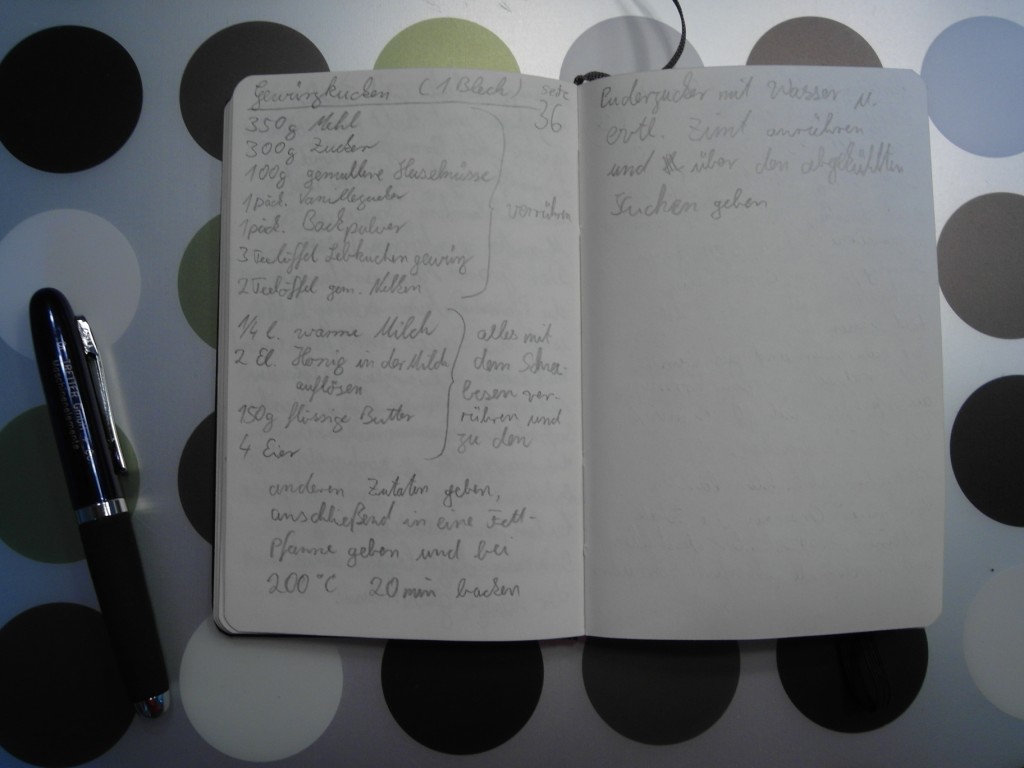 Gewürzkuchen (1 Blech) Seite 36
350g Mehl
300g Zucker
100g gemahlene Haselnüsse
1 päck. Vanillezucker
1 päck. Backpulver
3 Teelöffel Lebkuchengewürz
2 Teelöffel gem. Nelken
verrühren
1/4 l. warme Milch
2 El. Honig in der Milch
auflösen
150g flüssige Butter
4 Eier
alles mit
dem Schne-
besen ver-
rühren und
zu den
anderen Zutaten geben,
anschließend in eine Fett-
Pfanne geben und bei
200°C 20 min backen
Puderzucker mit Wasser u.
evtl. Zimt anrühren
und über den abgekühlten
Kuchen geben